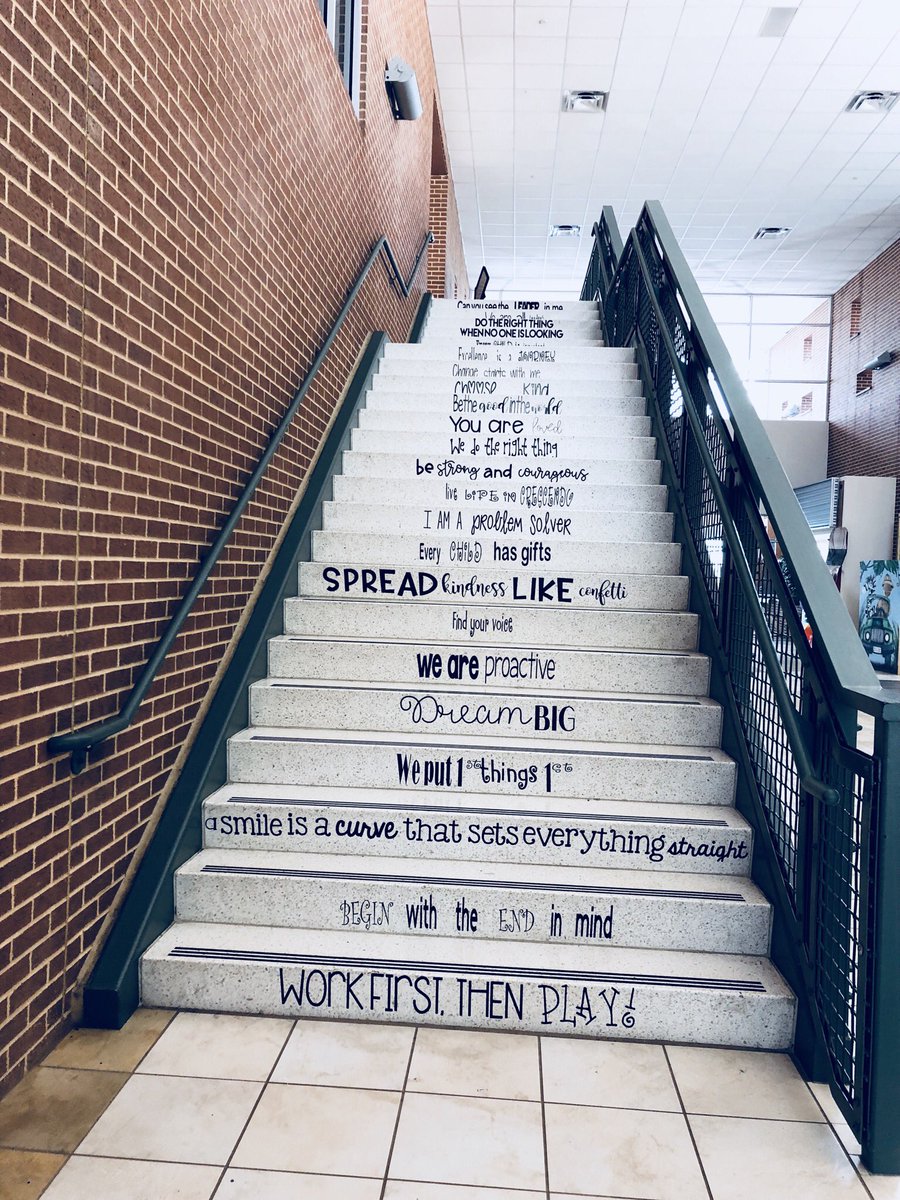 Can you see the LEADER in me
We are all
DO THE RIGHT THING
WHEN NO ONE IS LOOKING
Every CHILD
Excellence is a JOURNEY
Change starts with me
CHOOSE KIND
Be the good in the world
You are loved
We do the right thing
be strong and courageous
live LIFE in CRESCENDO
I AM A PROBLEM SOLVER
Every CHILD has gifts
SPREAD kindness LIKE confetti
find your voice
we are proactive
Dream BIG
We put 1st things 1st
a smile is a curve that sets everything straight
BEGIN with the END in mind
WORK FIRST, THEN PLAY!